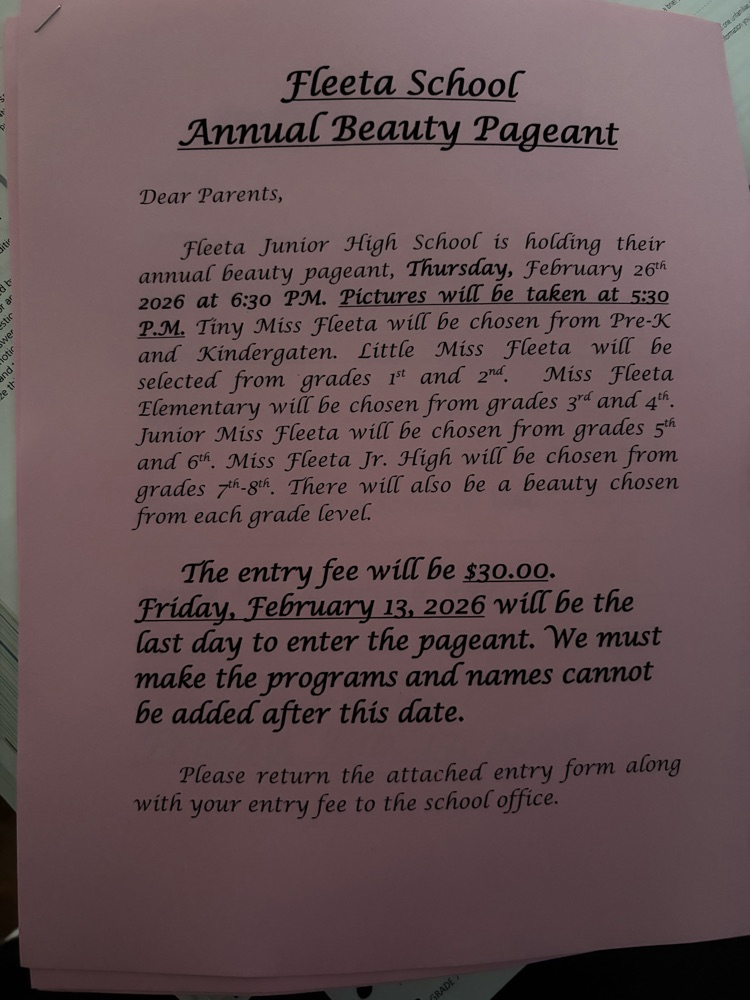 Fleeta School
Annual Beauty Pageant
Dear Parents,
Fleeta Junior High School is holding their
annual beauty pageant, Thursday, February 26th
2026 at 6:30 PM. Pictures will be taken at 5:30
P.M. Tiny Miss Fleeta will be chosen from Pre-K
and Kindergaten. Little Miss Fleeta will be
selected from grades 1st and 2nd. Miss Fleeta
Elementary will be chosen from grades 3rd and 4th.
Junior Miss Fleeta will be chosen from grades 5th
and 6th. Miss Fleeta Jr. High will be chosen from
grades 7th-8th. There will also be a beauty chosen
from each grade level.
The entry fee will be $30.00.
Friday, February 13, 2026 will be the
last day to enter the pageant. We must
make the programs and names cannot
be added after this date.
Please return the attached entry form along
with your entry fee to the school office.
GRADE